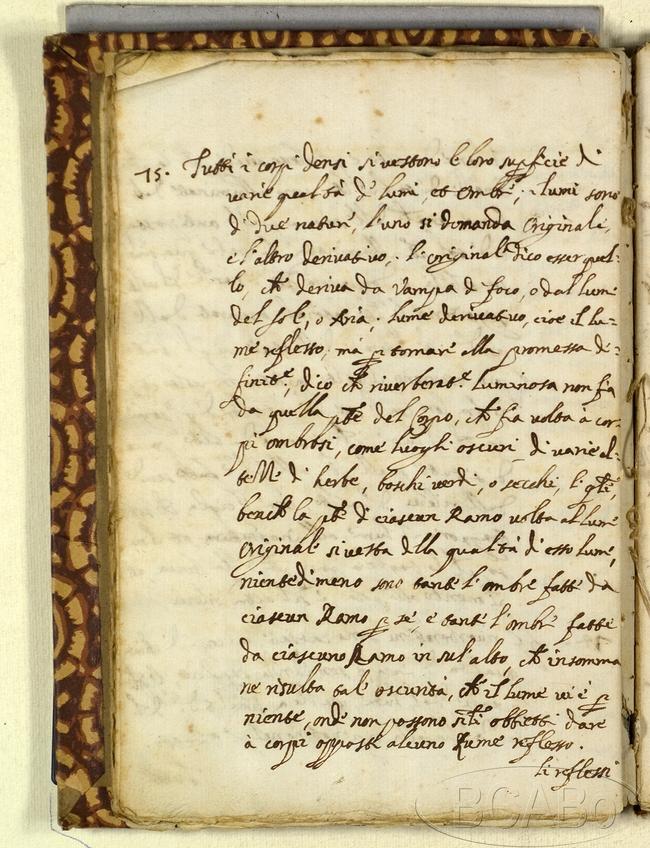 75. Tutti i corpi densi si vestono le loro supficie di
varie qualtà de lumi, et ombre; i lumi sono
di due nature, l'uno si domanda Originale,
e l'altro derivativo, l'originale dico esser quel-
lo, che deriva da Vampa di foco, o dal lume
del sole, o Aria; lume derivativo, cioè il lu-
me reflesso, mà p tornare alla promessa de-
finite.e, dico che riverberat.e luminosa non fia
da quella pte del Corpo, che fia volta à cor-
pi ombrosi, come luoghi oscuri di varie al-
telle di herbe, boschi verdi, o secchi, li qti,
benche la pte di ciascun Ramo volta al lume
Originale si vesta della qualità d'esso lume,
nientedimeno sono tante l'ombre fatte da
ciascun Ramo p sé, e tante l'ombre fatte
da ciascuno Ramo in sul'alto, che insomma
ne risulta tale oscurità, che il lume vi è p
niente, onde non possono sti obbietti dare
à corpi opposti alcuno Lume reflesso.
Li reflessi
BCABo